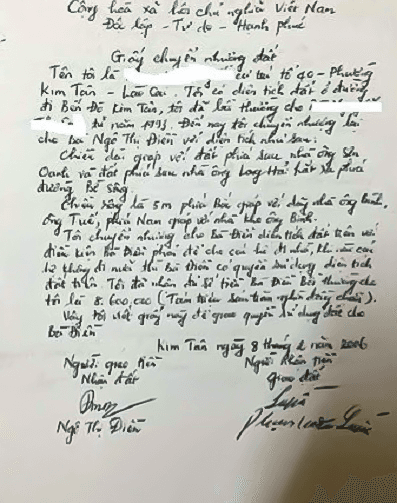 Cộng hoà xã hội chủ nghĩa Việt Nam
Độc lập - Tự do - Hạnh phúc
Giấy chuyển nhượng đất
Tên tôi là cư trú tổ 40 - Phường
Kim Tân - Lào Cai. Tôi có diện tích đất ở đường
đi Bến Đò Kim Tân, tôi đã bồi thường cho
từ năm 1993. Đến nay tôi chuyển nhượng lại
cho Bà Ngô Thị Điền với diện tích như sau:
Chiều dài giáp với đất phía sau nhà ông Sơn
Oanh và đất phía sau nhà ông Long Hải phía
đường Bờ sông.
Chiều rộng là 5m phía Bắc giáp với nhà ông Bình,
ông Tuế, phía Nam giáp với nhà kho ông Bình.
Tôi chuyển nhượng cho Bà Điền diện tích đất trên với
điều kiện Bà Điền phải để cho đi nhờ, khi nào
không đi nữa thì Bà Điền có quyền sử dụng diện tích
đất trên. Tôi đã nhận đủ số tiền Bà Điền Bồi thường cho
tôi là 8.600.000 (Tám triệu sáu trăm nghìn đồng chẵn).
Vậy tôi viết giấy này để giao quyền sử dụng đất cho
Bà Điền
Kim Tân ngày 8 tháng 2 năm 2006
Người giao tiền Người nhận tiền
Nhận đất giao đất
Ngô Thị Điền